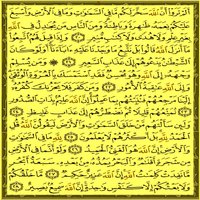 أَلَمْ تَرَوْا أَنَّ اللَّهَ سَخَّرَ لَكُم مَّا فِي السَّمَٰوَٰتِ وَمَا فِي الْأَرْضِ وَأَسْبَغَ
عَلَيْكُمْ نِعَمَهُ ظَٰهِرَةً وَبَاطِنَةً وَمِنَ النَّاسِ مَن يُجَٰدِلُ فِي
اللَّهِ بِغَيْرِ عِلْمٍ وَلَا هُدًى وَلَا كِتَٰبٍ مُّنِيرٍ ٢٠ وَإِذَا قِيلَ لَهُمُ اتَّبِعُوا
مَا أَنزَلَ اللَّهُ قَالُوا بَلْ نَتَّبِعُ مَا وَجَدْنَا عَلَيْهِ ءَابَاءَنَا أَوَلَوْ كَانَ
الشَّيْطَٰنُ يَدْعُوهُمْ إِلَىٰ عَذَابِ السَّعِيرِ ٢١ وَمَن يُسْلِمْ
وَجْهَهُ إِلَى اللَّهِ وَهُوَ مُحْسِنٌ فَقَدِ اسْتَمْسَكَ بِالْعُرْوَةِ الْوُثْقَىٰ
وَإِلَى اللَّهِ عَٰقِبَةُ الْأُمُورِ ٢٢ وَمَن كَفَرَ فَلَا يَحْزُنكَ كُفْرُهُ
إِلَيْنَا مَرْجِعُهُمْ فَنُنَبِّئُهُم بِمَا عَمِلُوا إِنَّ اللَّهَ عَلِيمٌ بِذَاتِ الصُّدُورِ
٢٣ نُمَتِّعُهُمْ قَلِيلًا ثُمَّ نَضْطَرُّهُمْ إِلَىٰ عَذَابٍ غَلِيظٍ ٢٤
وَلَئِن سَأَلْتَهُم مَّنْ خَلَقَ السَّمَٰوَٰتِ وَالْأَرْضَ لَيَقُولُنَّ اللَّهُ قُلِ
الْحَمْدُ لِلَّهِ بَلْ أَكْثَرُهُمْ لَا يَعْلَمُونَ ٢٥ لِلَّهِ مَا فِي السَّمَٰوَٰتِ
وَالْأَرْضِ إِنَّ اللَّهَ هُوَ الْغَنِيُّ الْحَمِيدُ ٢٦ وَلَوْ أَنَّمَا فِي الْأَرْضِ
مِن شَجَرَةٍ أَقْلَٰمٌ وَالْبَحْرُ يَمُدُّهُ مِن بَعْدِهِ سَبْعَةُ أَبْحُرٍ
مَّا نَفِدَتْ كَلِمَٰتُ اللَّهِ إِنَّ اللَّهَ عَزِيزٌ حَكِيمٌ ٢٧ مَّا خَلْقُكُمْ
وَلَا بَعْثُكُمْ إِلَّا كَنَفْسٍ وَٰحِدَةٍ إِنَّ اللَّهَ سَمِيعٌ بَصِيرٌ ٢٨